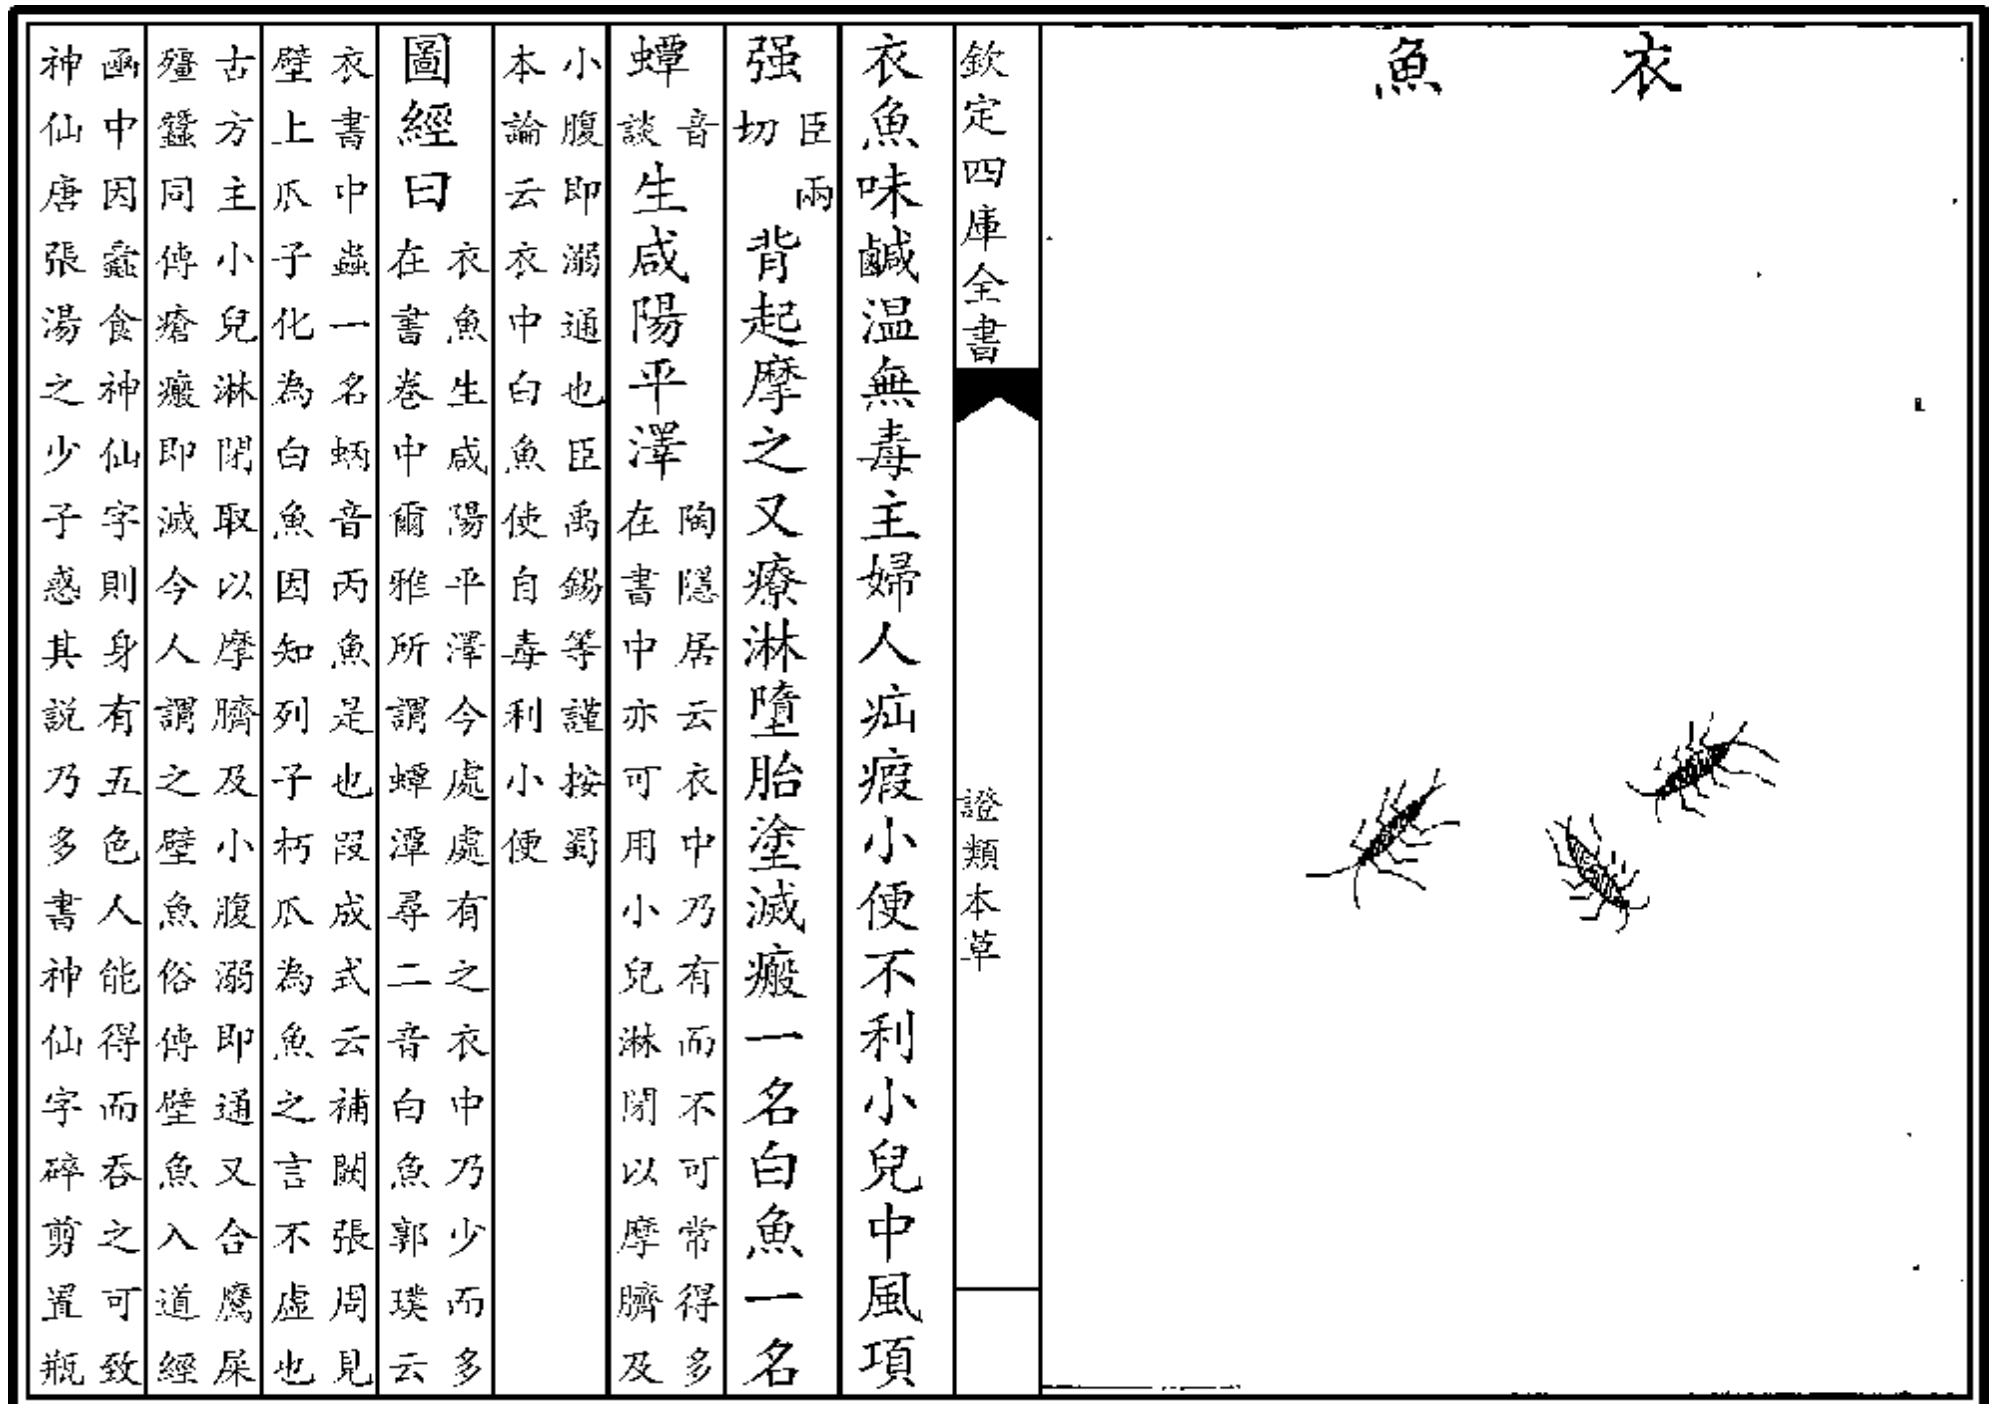 衣魚
欽定四庫全書
證類本草
衣魚味鹹温無毒主婦人疝瘕小便不利小兒中風項
强臣兩切背起摩之又療淋墮胎塗滅瘢一名白魚一名
蟫音談生咸陽平澤陶隱居云衣中乃有而不可常得多在書中亦可用小兒淋閉以摩臍及
小腹即溺通也臣禹錫等謹按蜀本論云衣中白魚使自毒利小便
圖經曰衣魚生咸陽平澤今處處有之衣中乃少而多在書卷中爾雅所謂蟫潭尋二音白魚郭璞云
衣書中蟲一名蛃音丙魚是也段成式云補闕張周見壁上瓜子化為白魚因知列子朽瓜為魚之言不虛也
古方主小兒淋閉取以摩臍及小腹溺即通又合鷹屎殭蠶同傅瘡瘢即滅今人謂之壁魚俗傳壁魚入道經
凾中因蠧食神仙字則身有五色人能得而吞之可致神仙唐張湯之少子惑其説乃多書神仙字碎剪置瓶